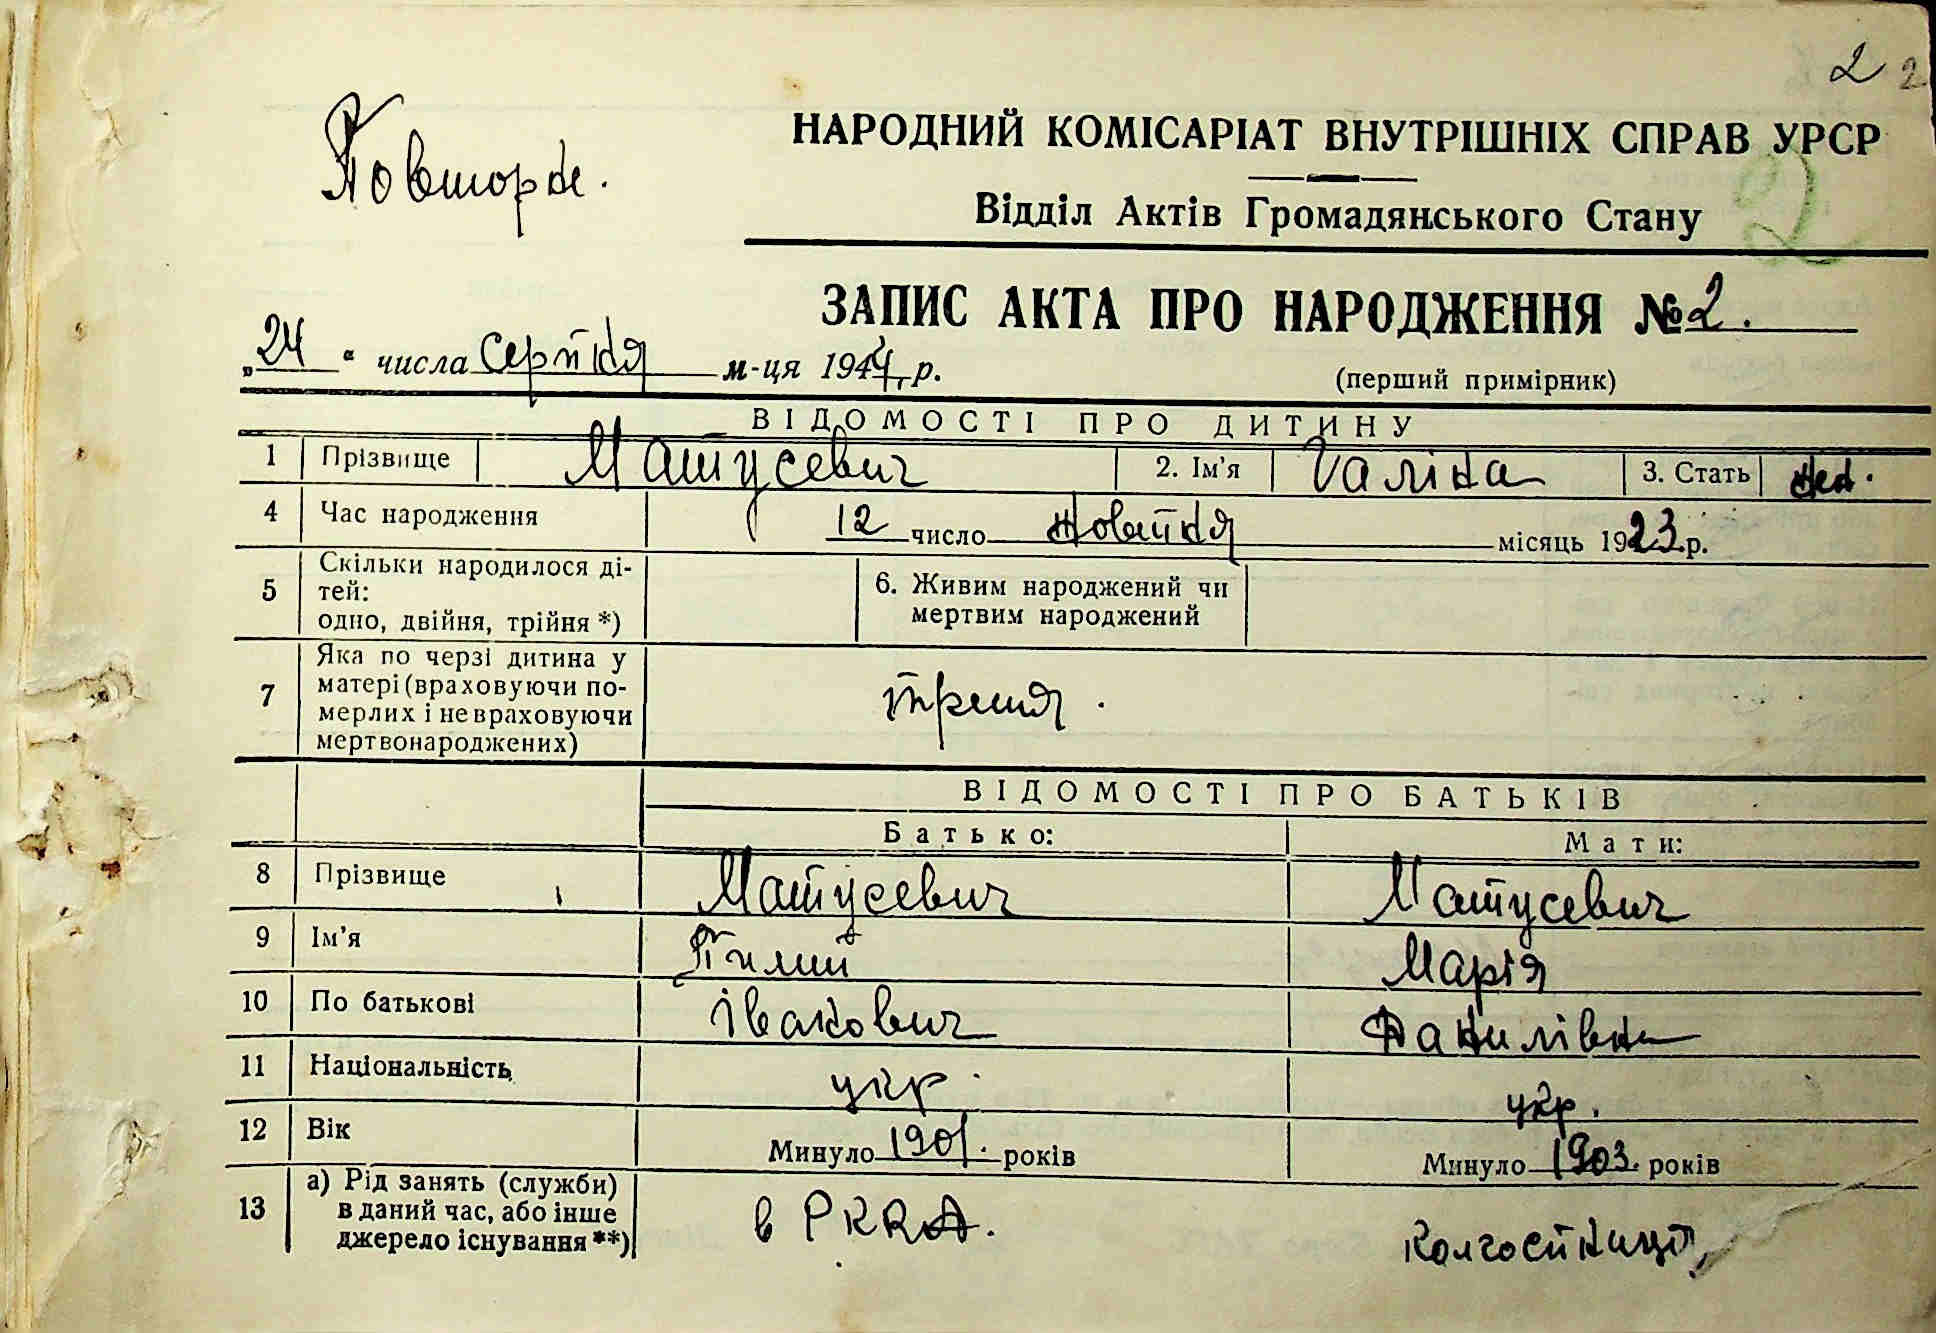 2 2
Повторне.
НАРОДНИЙ КОМІСАРІАТ ВНУТРІШНІХ СПРАВ УРСР
Відділ Актів Громадянського Стану
2
ЗАПИС АКТА ПРО НАРОДЖЕННЯ № 2.
„24" числа Серпня м-ця 1944 р.
(перший примірник)
ВІДОМОСТІ ПРО ДИТИНУ
1 Прізвище Матусевич 2. Ім'я Галіна 3. Стать жен.
4 Час народження 12 число Жовтня місяць 1923 р.
5 Скільки народилося ді-
тей:
одно, двійня, трійня *)
6. Живим народжений чи
мертвим народжений
7 Яка по черзі дитина у
матері (враховуючи по-
мерлих і не враховуючи
мертвонароджених)
третя.
ВІДОМОСТІ ПРО БАТЬКІВ
Батько: Мати:
8 Прізвище Матусевич Матусевич
9 Ім'я Пилип Марія
10 По батькові Іванович Данилівна
11 Національність укр. укр.
12 Вік Минуло 1901. років Минуло 1903. років
13 а) Рід занять (служби)
в даний час, або інше
джерело існування **)
в РККА. Колгоспниця